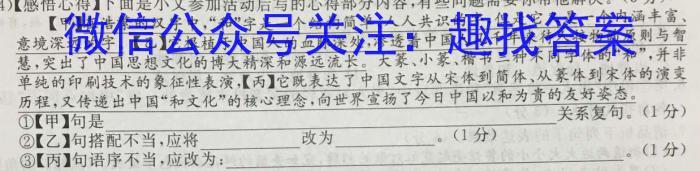 4)【感悟心得】下面是小文参加活动后写的心得部分内容,有些问题需要你帮他解决。(3分)
【甲】
微信公众号关注:趣找答案
涵丰富、
意境深
国人
则与智
慧,突出了中国思想文化的博大精深和源远流长。大篆、小篆、楷书三种不同字体的“和”,并非
单纯的印刷技术的象征性表演,【丙】它既表达了中国文字从宋体到简体、从篆体到宋体的演变
历程,又传递出中国“和文化”的核心理念,向世界宣扬了今日中国以和为贵的友好姿态。
①【甲】句是 关系复句。(1分)
②【乙】句搭配不当,应将 改为 。(1分)
③【丙】句语序不当,应改为: 。(1分)